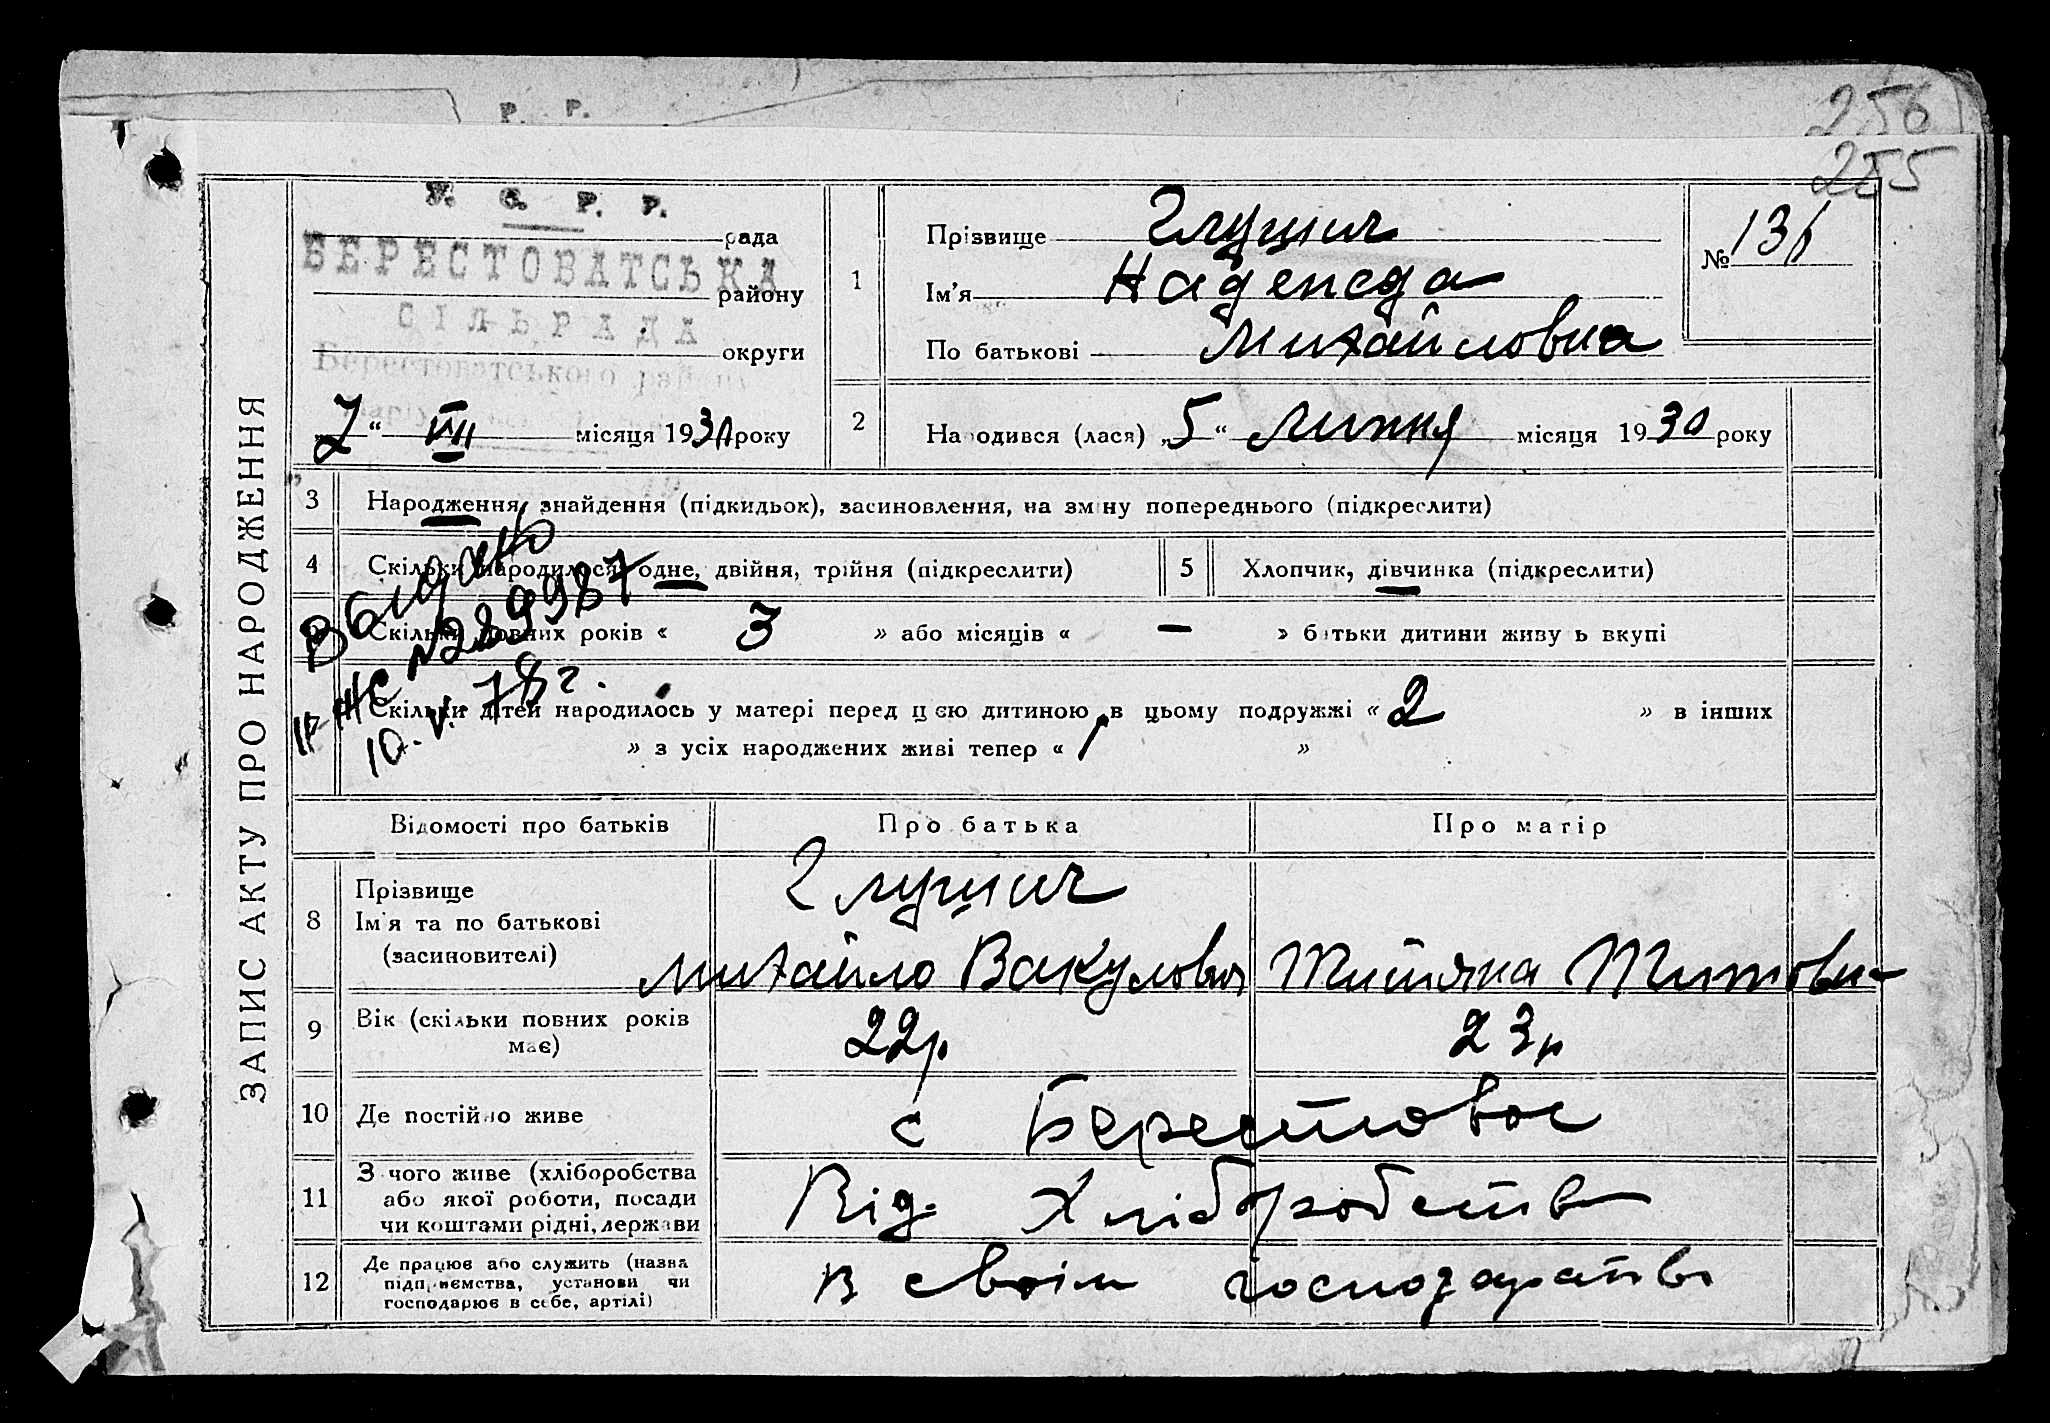 Р. Р.
256
255
У. С. Р. Р.
рада
БЕРЕСТОВАТСЬКА
району
СІЛЬРАДА
округи
Берестоватського району
7 “ VII місяця 1930 року
ЗАПИС АКТУ ПРО НАРОДЖЕННЯ
1
Прізвище Глущич
Ім'я Надежда
По батькові Михайловна
№
2
Народився (лася) „5“ Липня місяця 1930 року
3 Народження, знайдення (підкидьок), засиновлення, на зміну попереднього (підкреслити)
4 Скільки народилося: одне, двійня, трійня (підкреслити)
5 Хлопчик, дівчинка (підкреслити)
Скільки повних років « 3 » або місяців « — » батьки дитини живуть вкупі
Скільки дітей народилось у матері перед цією дитиною, в цьому подружжі « 2 » в інших
» з усіх народжених живі тепер « 1 »
Выдано
II-ЖС №289987
10. V. 78 г.
Відомості про батьків Про батька Про матір
8 Прізвище
Ім'я та по батькові
(засиновителі)
Глущич
Михайло Вакулович Титяна Титовна
9 Вік (скільки повних років має) 22р 23р
10 Де постійно живе с Берестовое
11 З чого живе (хліборобства
або якої роботи, посади
чи коштами рідні, держави
Від. Хліборобства
12 Де працює або служить (назва
підприємства, установи чи
господарює в себе, артілі)
в своім господарстві